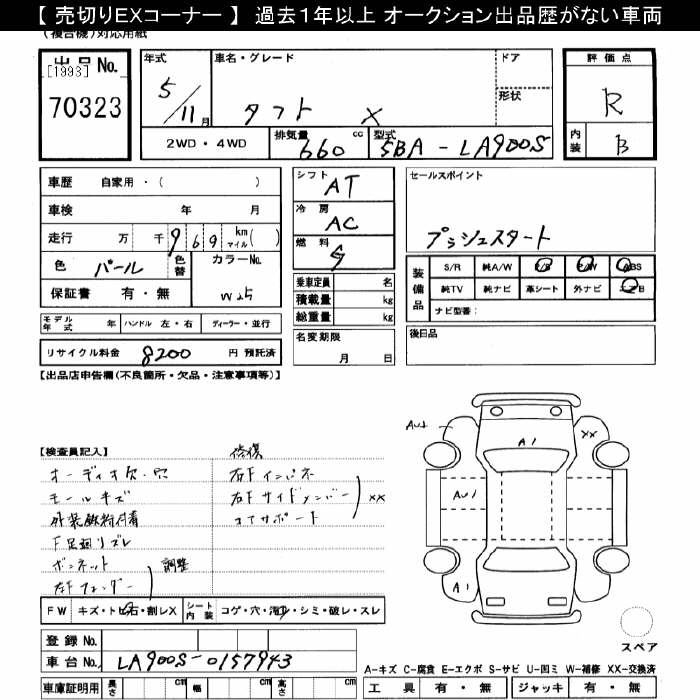 【 売切りEXコーナー 】 過去1年以上 オークション出品歴がない車両
(複合機)対応用紙
出品 No.
[1993]
70323
年式
5/11月
車名・グレード
タフト X
ドア
形状
評価点
R
内装
B
2WD・4WD
排気量
660 cc
型式
5BA-LA900S
車歴 自家用・( )
車検 年 月
走行 万 千 969 km マイル( )
色 パール
色替
カラーNo.
W25
保証書 有・無
シフト
AT
冷房
AC
燃料
G
乗車定員 名
積載量 kg
総重量 kg
名変期限
月 日
セールスポイント
プッシュスタート
装備品
S/R 純A/W P/S P/W ABS
純TV 純ナビ 革シート 外ナビ エアB
ナビ型番:
後日品
モデル年式 年 ハンドル 左・右 ディーラー・並行
リサイクル料金 8200 円 預託済
【出品店申告欄(不良箇所・欠品・注意事項等)】
【検査員記入】
修復
オーディオ欠・穴
右Fインパネ
モールキズ
右Fサイドメンバー
XX
外装鉄粉付着
コアサポート
F足廻りズレ
ボンネット
調整
左Fフェンダー
FW キズ・トビ石・割レX
シート内装 コゲ・穴・汚レ・シミ・破レ・スレ
登録 No.
車台 No. LA900S-0157943
車庫証明用 長さ cm 幅 cm 高さ cm
AU1
A1
XX
AU1
A1
スペア
A-キズ C-腐食 E-エクボ S-サビ U-凹ミ W-補修 XX-交換済
工具 有・無
ジャッキ 有・無